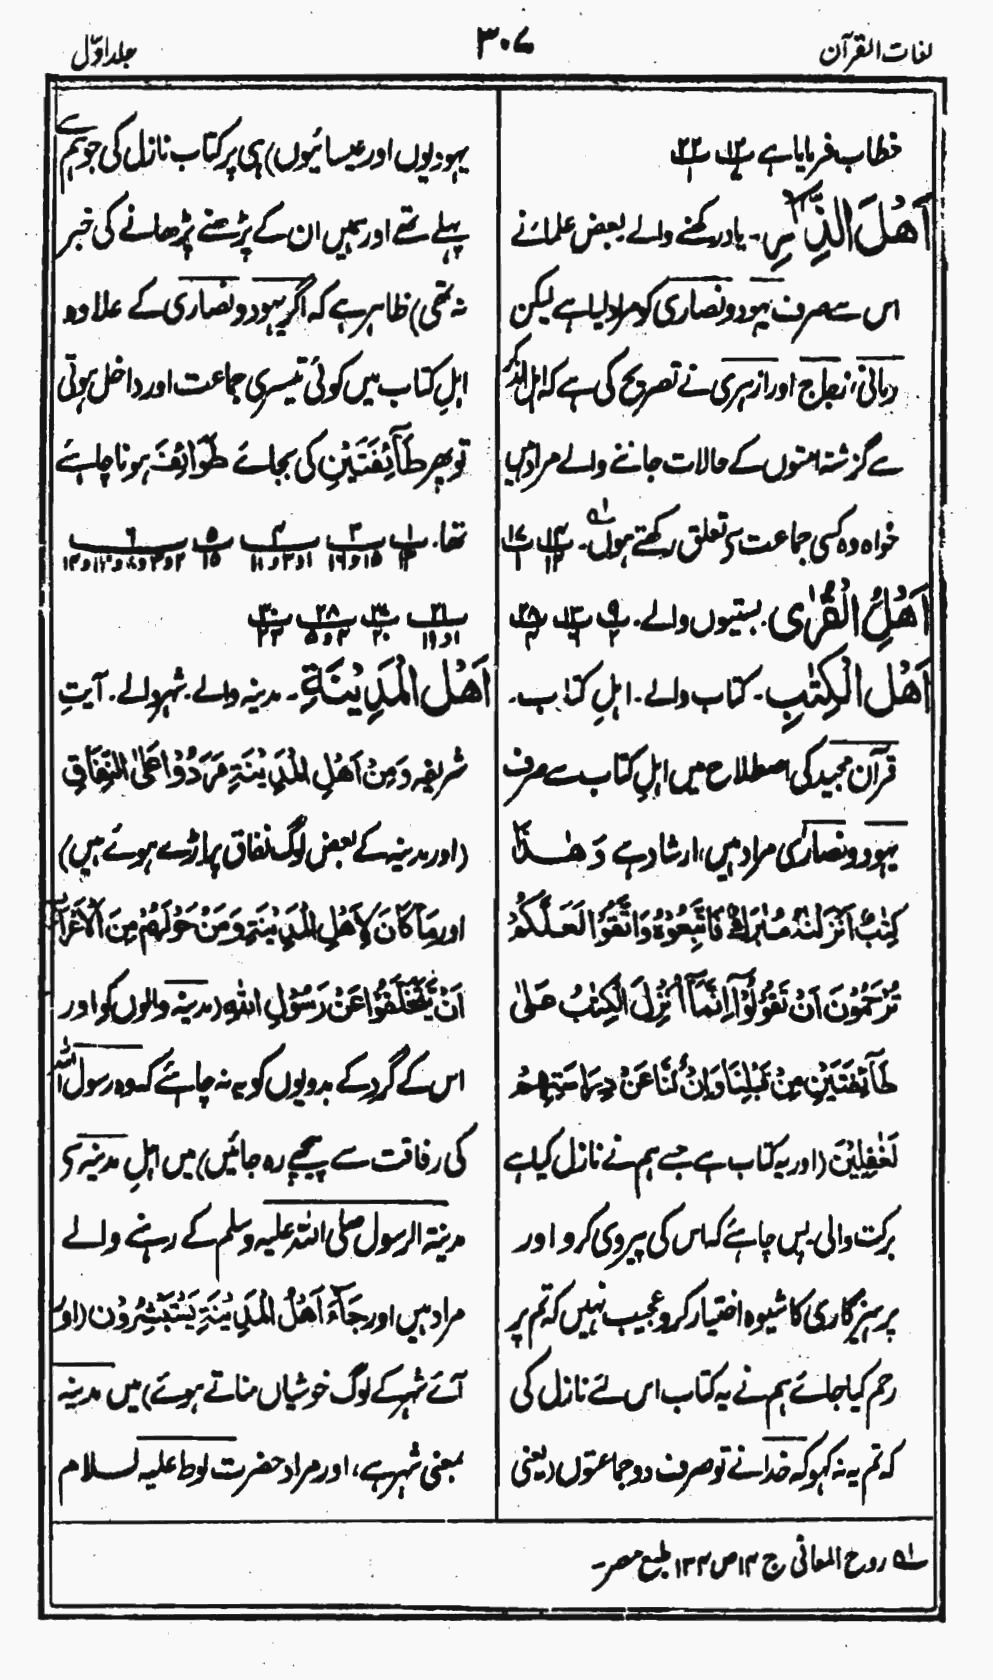 لغات القرآن
۳۰۷
جلد اوّل
خطاب فرمایا ہے ۱۲ ۲۲
اَهْلَ الذِّكْرِ۔ یاد رکھنے والے۔ بعض علماء نے
اس سے صرف یہود و نصاریٰ کو مراد لیا ہے لیکن
رمانی، زجاج اور ازہری نے تصریح کی ہے کہ اہل الذکر
سے گزشتہ امتوں کے حالات جاننے والے مراد ہیں
خواہ وہ کسی جماعت سے تعلق رکھتے ہوں۔
اَهْلُ الْقُرٰى۔ بستیوں والے۔
اَهْلُ الْكِتٰبِ۔ کتاب والے۔ اہلِ کتاب۔
قرآن مجید کی اصطلاح میں اہلِ کتاب سے صرف
یہود و نصاریٰ مراد ہیں، ارشاد ہے وَهٰذَا
كِتٰبٌ اَنْزَلْنٰهُ مُبٰرَكٌ فَاتَّبِعُوْهُ وَاتَّقُوْا لَعَلَّكُمْ
تُرْحَمُوْنَ اَنْ تَقُوْلُوْٓا اِنَّمَآ اُنْزِلَ الْكِتٰبُ عَلٰى
طَآئِفَتَيْنِ مِنْ قَبْلِنَا وَاِنْ كُنَّا عَنْ دِرَاسَتِهِمْ
لَغٰفِلِيْنَ (اور یہ کتاب ہے جسے ہم نے نازل کیا ہے
برکت والی۔ پس چاہئے کہ اس کی پیروی کرو اور
پرہیزگاری کا شیوہ اختیار کرو عجیب نہیں کہ تم پر
رحم کیا جائے ہم نے یہ کتاب اس لئے نازل کی
کہ تم یہ نہ کہو کہ خدا نے تو صرف دو جماعتوں (یعنی
یہودیوں اور عیسائیوں) ہی پر کتاب نازل کی جو ہم سے
پہلے تھے اور ہمیں ان کے پڑھنے پڑھانے کی خبر
نہ تھی) ظاہر ہے کہ اگر یہود و نصاریٰ کے علاوہ
اہلِ کتاب میں کوئی تیسری جماعت اور داخل ہوتی
تو پھر طَآئِفَتَيْنِ کی بجائے طَوَآئِفَ ہونا چاہئے
تھا۔
اَهْلِ الْمَدِيْنَةِ۔ مدینہ والے۔ شہر والے۔ آیتِ
شریفہ وَمِنْ اَهْلِ الْمَدِيْنَةِ مَرَدُوْا عَلَى النِّفَاقِ
(اور مدینہ کے بعض لوگ نفاق پر اڑے ہوئے ہیں)
اور مَا كَانَ لِاَهْلِ الْمَدِيْنَةِ وَمَنْ حَوْلَهُمْ مِنَ الْاَعْرَابِ
اَنْ يَّتَخَلَّفُوْا عَنْ رَسُوْلِ اللّٰهِ (مدینہ والوں کو اور
اس کے گرد کے بدویوں کو یہ نہ چاہئے کہ وہ رسول اللہ
کی رفاقت سے پیچھے رہ جائیں) میں اہلِ مدینہ سے
مدینۃ الرسول صلی اللہ علیہ وسلم کے رہنے والے
مراد ہیں اور جَآءَ اَهْلُ الْمَدِيْنَةِ يَسْتَبْشِرُوْنَ (اور
آئے شہر کے لوگ خوشیاں مناتے ہوئے) میں مدینہ
بمعنی شہر ہے، اور مراد حضرت لوط علیہ السلام
۱ے روح المعانی ج ۱۴ ص ۱۳۴ طبع مصر۔